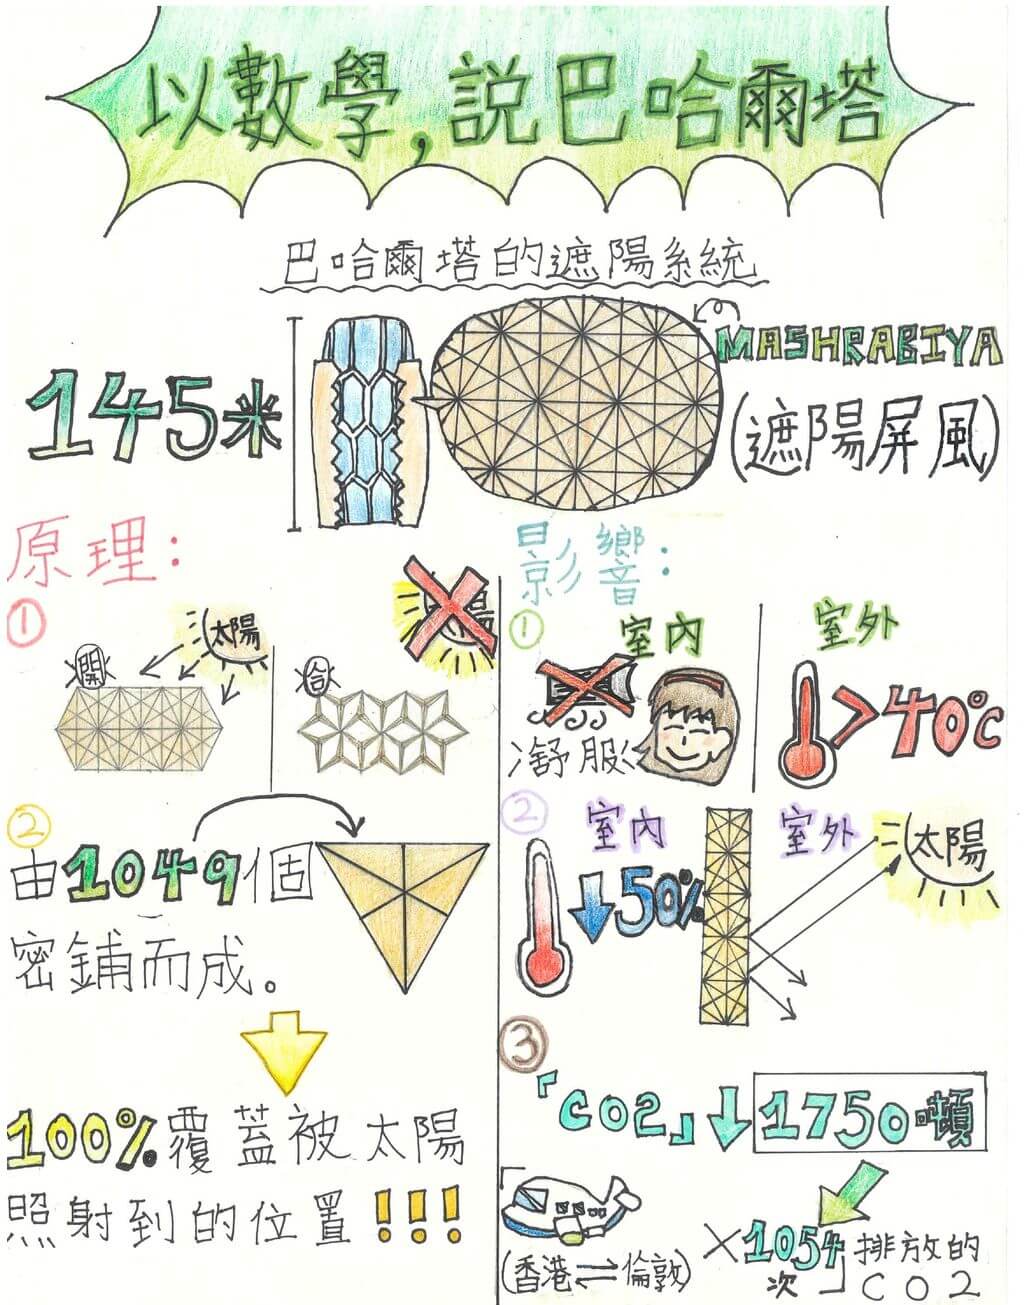 以數學，説巴哈爾塔
巴哈爾塔的遮陽系統
145米
MASHRABIYA
(遮陽屏風)
原理：
①
開
太陽
合
②
由1049個
密鋪而成。
100%覆蓋被太陽
照射到的位置!!!
影響：
①
室內
舒服
室外
>40°C
②
室內
↓50%
室外
太陽
③
「CO2」↓1750噸
「
(香港⇌倫敦)
×1054次」排放的
CO2